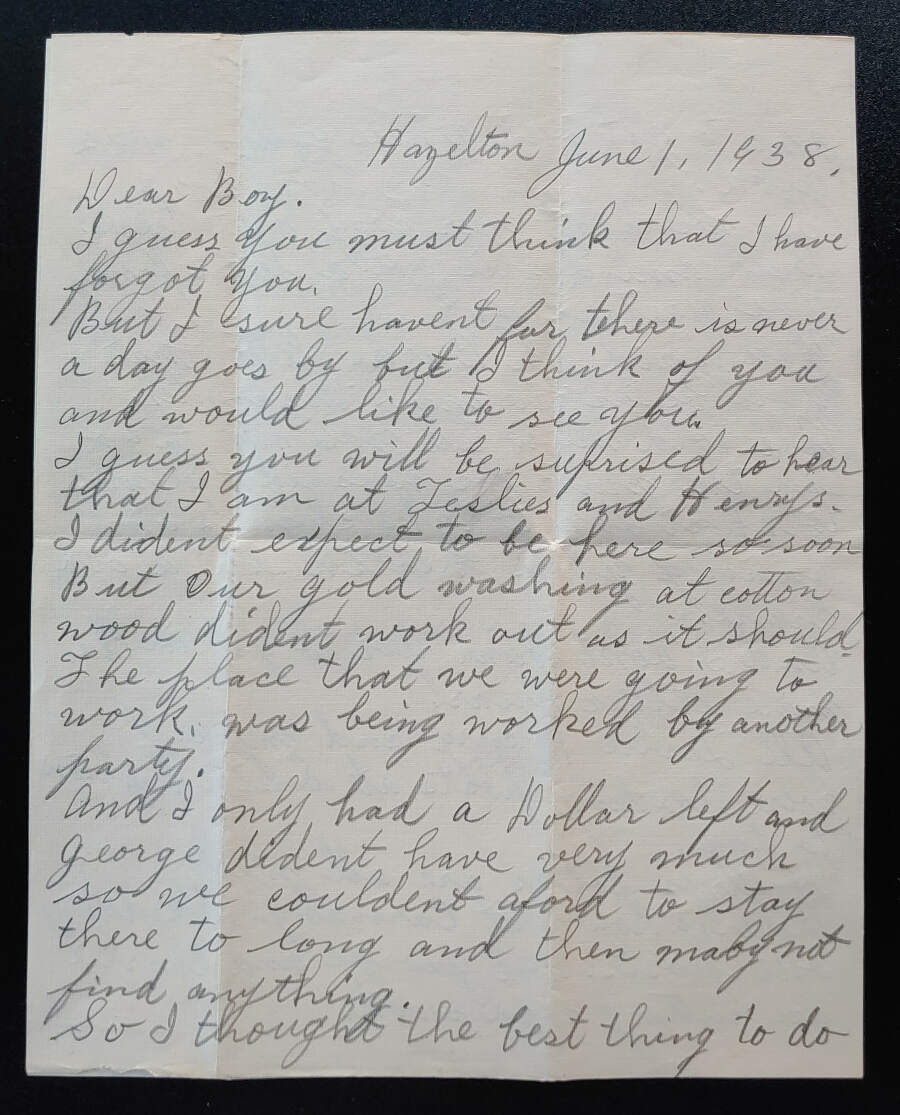 Hazelton June 1, 1938.
Dear Boy.
I guess you must think that I have
forgot you.
But I sure havent for there is never
a day goes by but I think of you
and would like to see you.
I guess you will be suprised to hear
that I am at Leslies and Henrys.
I dident expect to be here so soon
But our gold washing at cotton
wood dident work out as it should.
The place that we were going to
work, was being worked by another
party.
And I only had a Dollar left and
George dident have very much
so we couldent aford to stay
there to long and then maby not
find anything.
So I thought the best thing to do